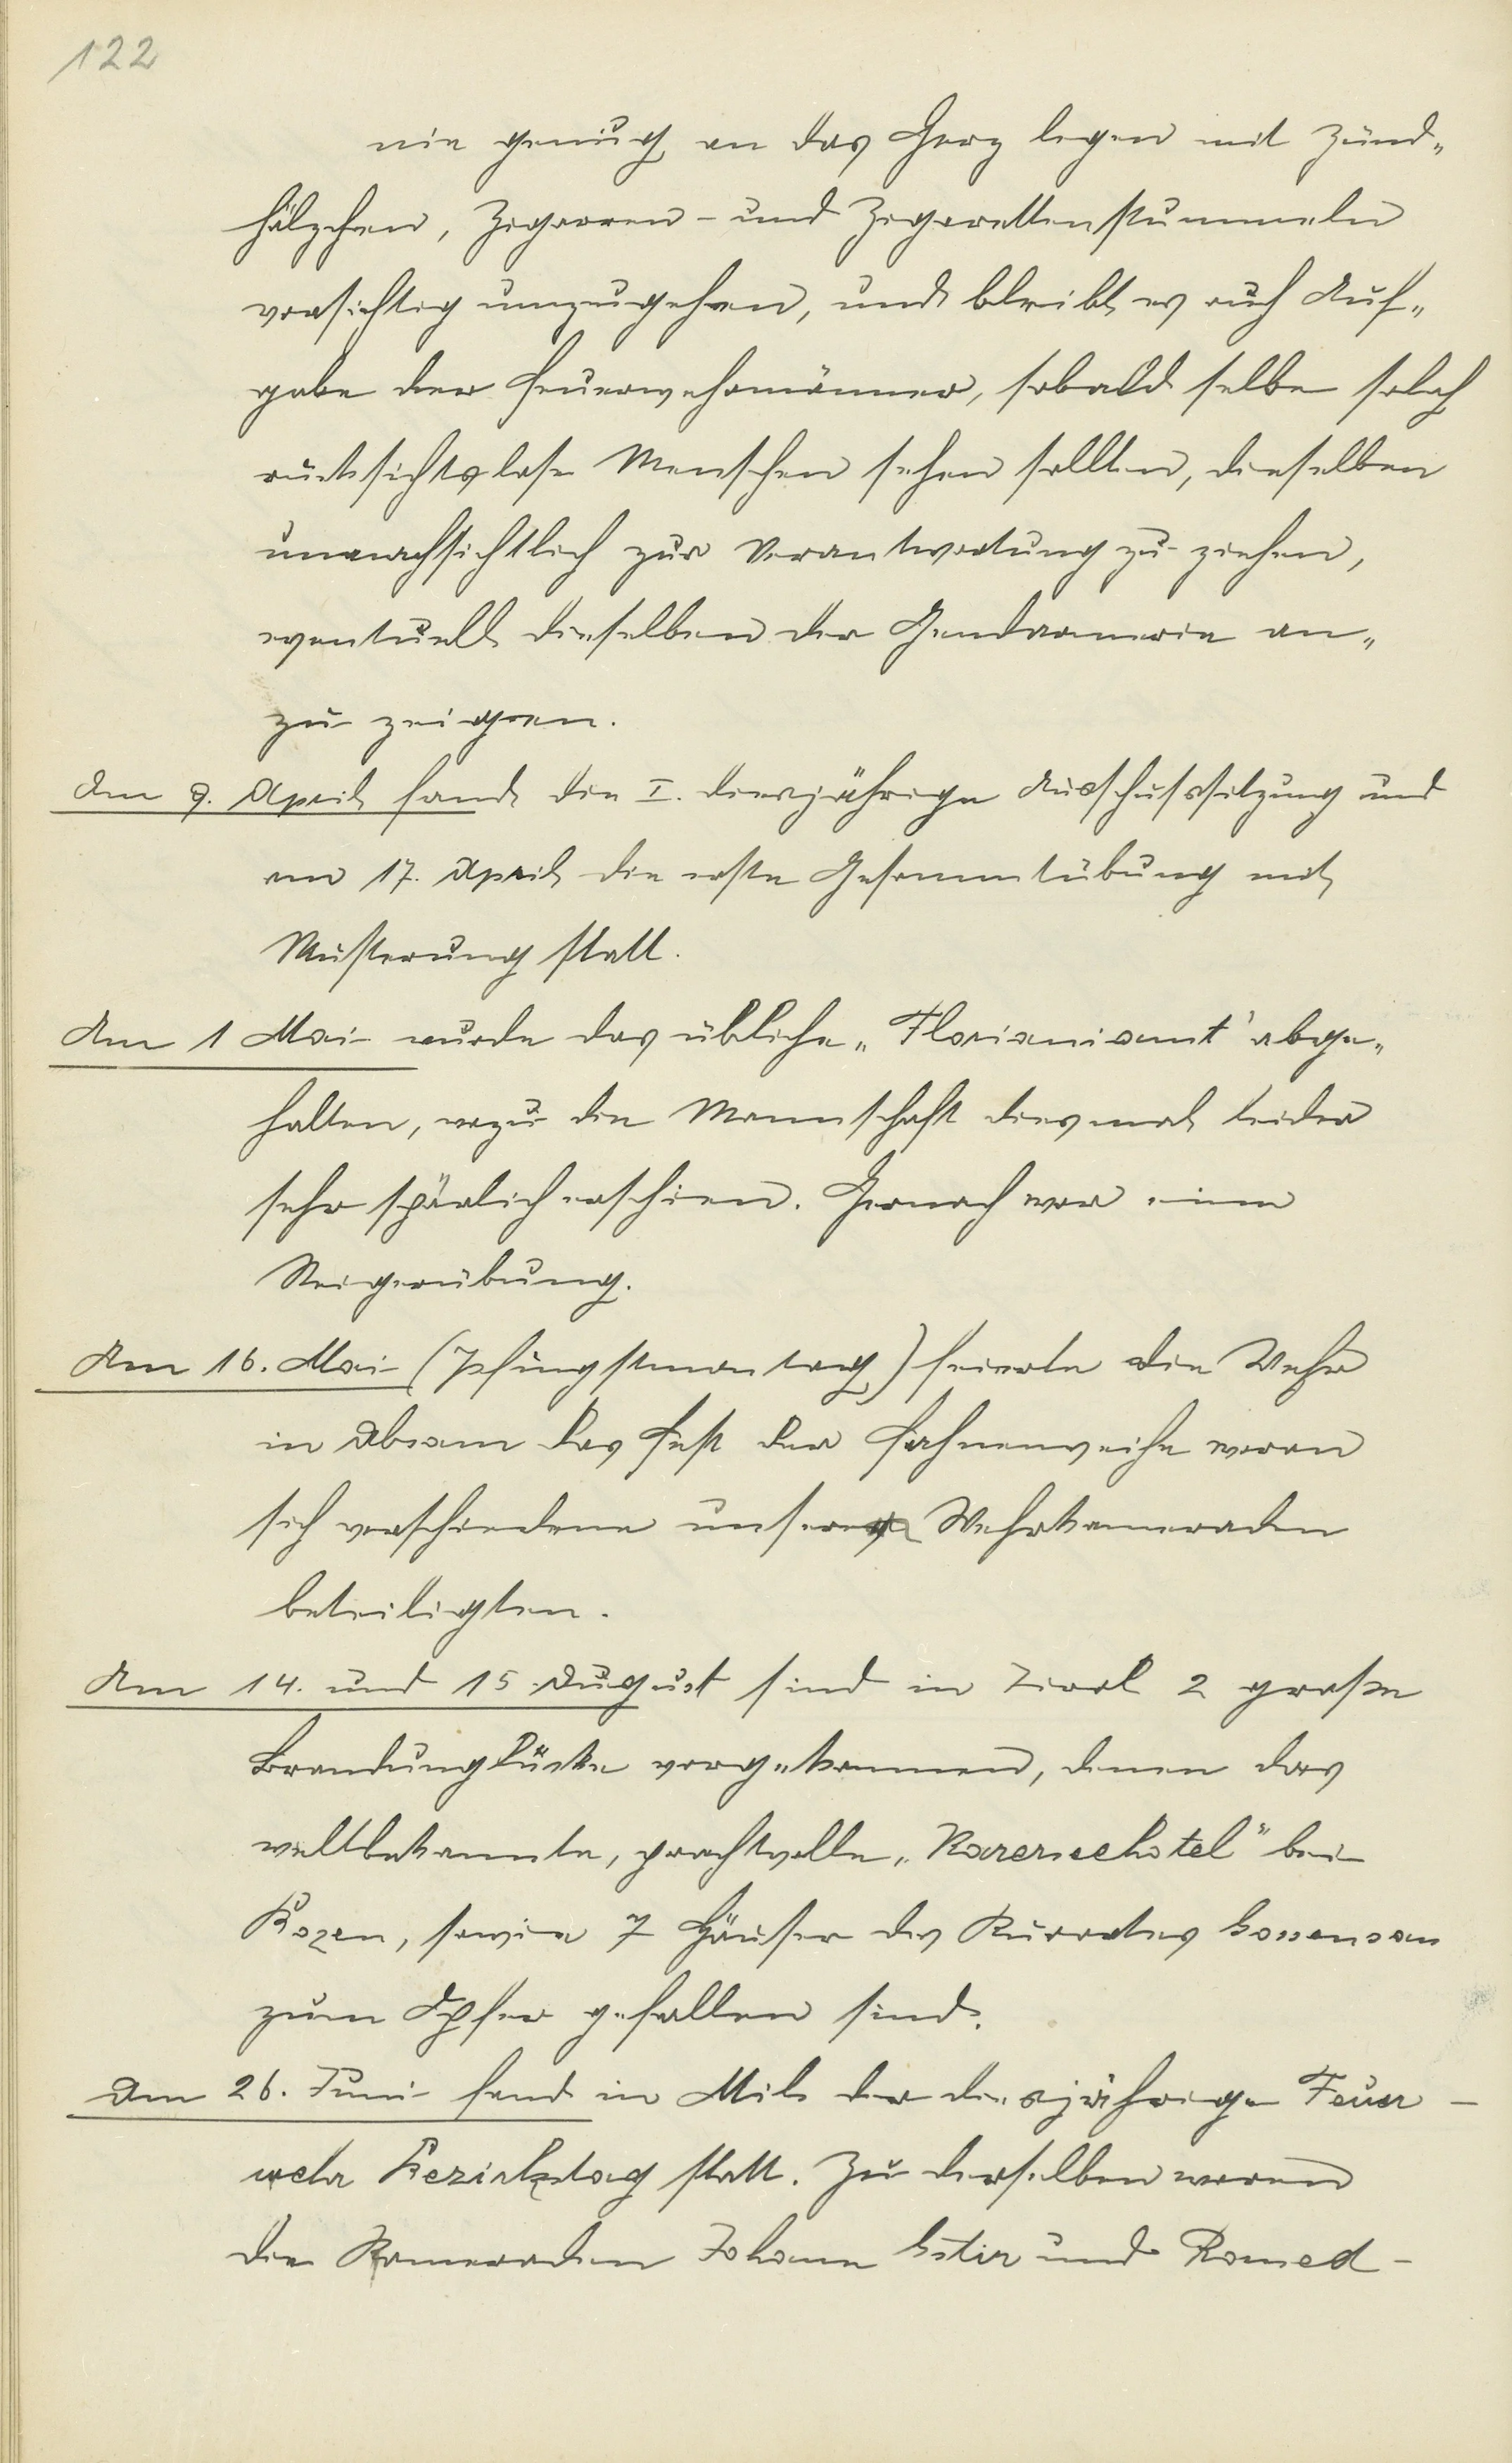 122
nie genug an das Herz legen mit Zünd„
hölzchen, Zigarren- und Zigarettenstummeln
vorsichtig umzugehen, und bleibt es auch Auf„
gabe der Feuerwehrmänner, sobald selbe solch
rücksichtslose Menschen sehen sollten, dieselben
unnachsichtlich zur Verantwortung zu ziehen,
eventuell dieselben der Gendarmerie an„
zu zeigen.
Am 9. April fand die I. diesjährige Ausschußsitzung und
am 17. April die erste Gesammtübung mit
Musterung statt.
Am 1 Mai wurde das übliche „Florianiamt' abge„
halten, wozu die Mannschaft diesmal leider
sehr spärlich erschien. Hernach war eine
Steigerübung.
Am 16. Mai (Pfingstmontag) feierte die Wehr
in Absam das Fest der Fahnenweihe woran
sich verschiedene unserer Wehrkameraden
beteiligten.
Am 14. und 15. August sind in Tirol 2 große
Brandunglücke vorgekommen, denen das
weltbekannte, prachtvolle „Karerseehotel" bei
Bozen, sowie 7 Häuser des Kurortes Gossensass
zum Opfer gefallen sind.
Am 26. Juni fand in Mils der diesjährige Feuer-
wehr Bezirkstag statt. Zu derselben waren
die Kameraden Johann Gstir und Romed-